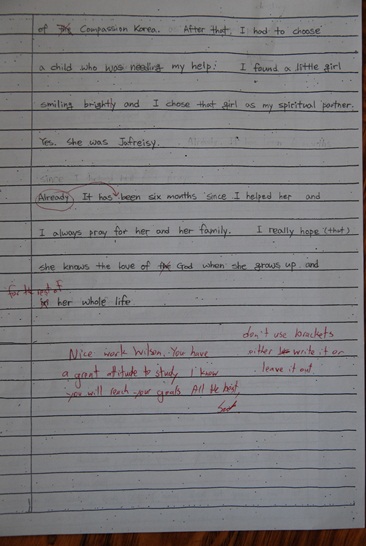 of The Compassion Korea. After that, I had to choose
a child who was needing my help. I found a little girl
smiling brightly and I chose that girl as my spiritual partner.
Yes. She was Jofreisy.
Already It has been six months since I helped her and
I always pray for her and her family. I really hope (that)
she knows the love of God when she grows up and
for the rest of
her whole life
don't use brackets
either write it or
leave it out
Nice work Wilson. You have
a great attitude to study I know
you will reach your goals All the best,